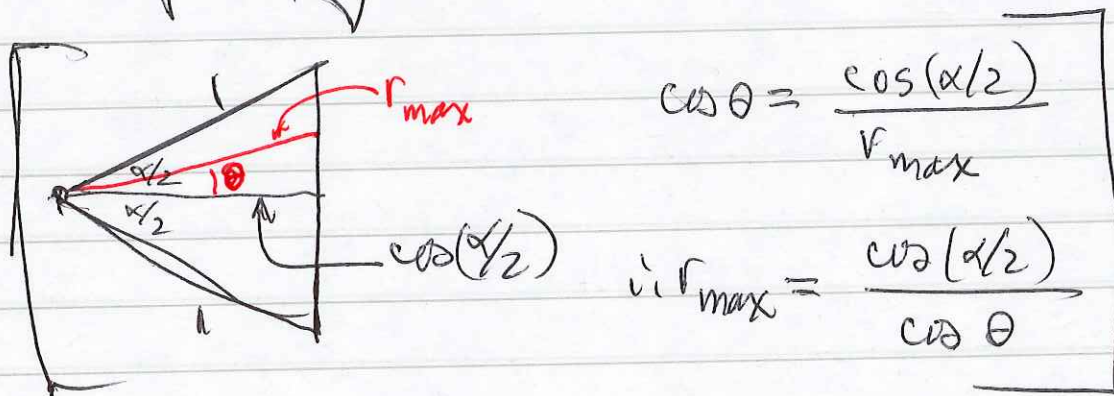 1
r_max
α/2
θ
α/2
1
cos(α/2)
cos θ = cos(α/2) / r_max
∴ r_max = cos(α/2) / cos θ